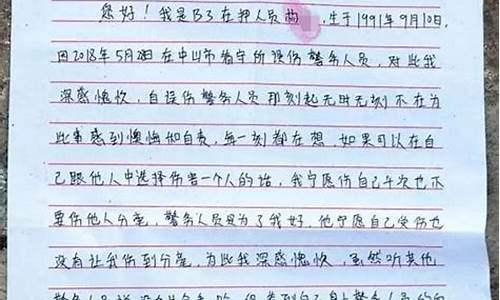 您好！我是B3在押人员尚 ，生于1991年9月10日，
因2018年5月2日在中山市看守所误伤警务人员，对此我
深感愧疚，自误伤警务人员那刻起无时无刻不在为
此事感到懊悔和自责，每一刻都在想，如果可以在自
己跟他人中选择伤害一个人的话，我宁愿伤自己千次也不
要伤他人分毫，警务人员是为了我好，他宁愿自己受伤也
没有让我伤到分毫，为此我深感愧疚，虽然听其他
警务人员说没有什么事